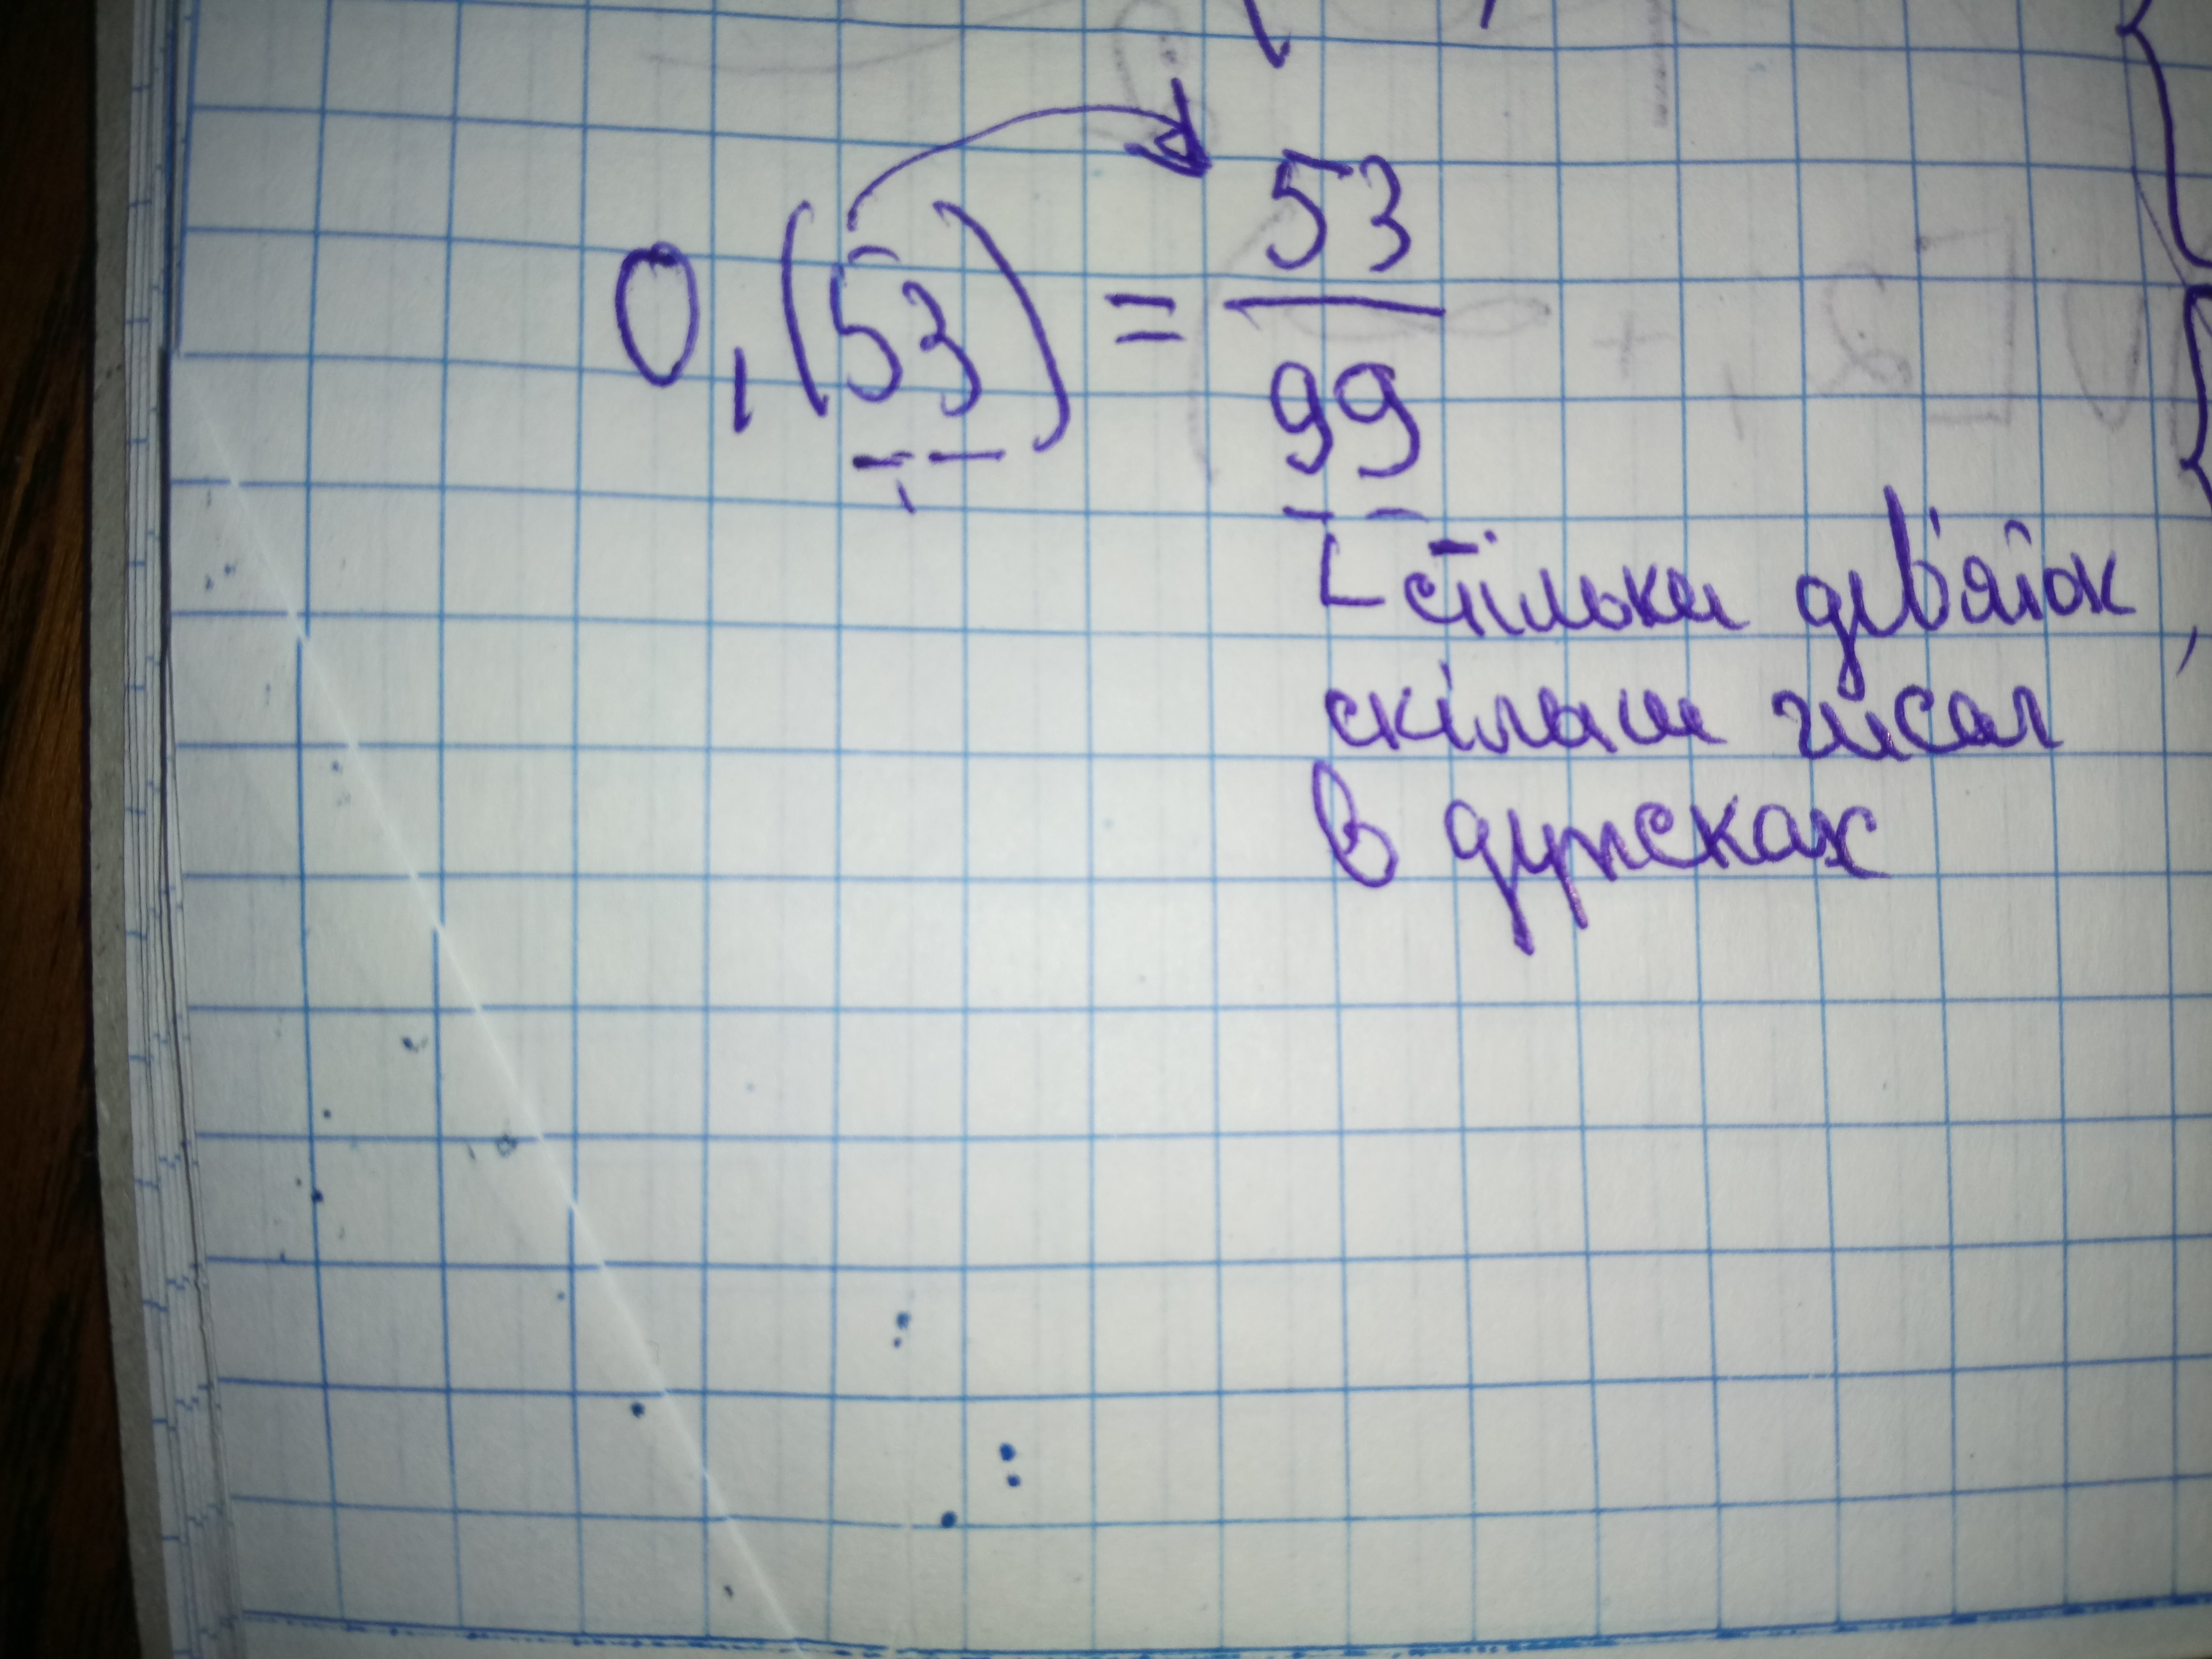 0,(53) = 53/99
стільки дев'яток,
скільки чисел
в дужках